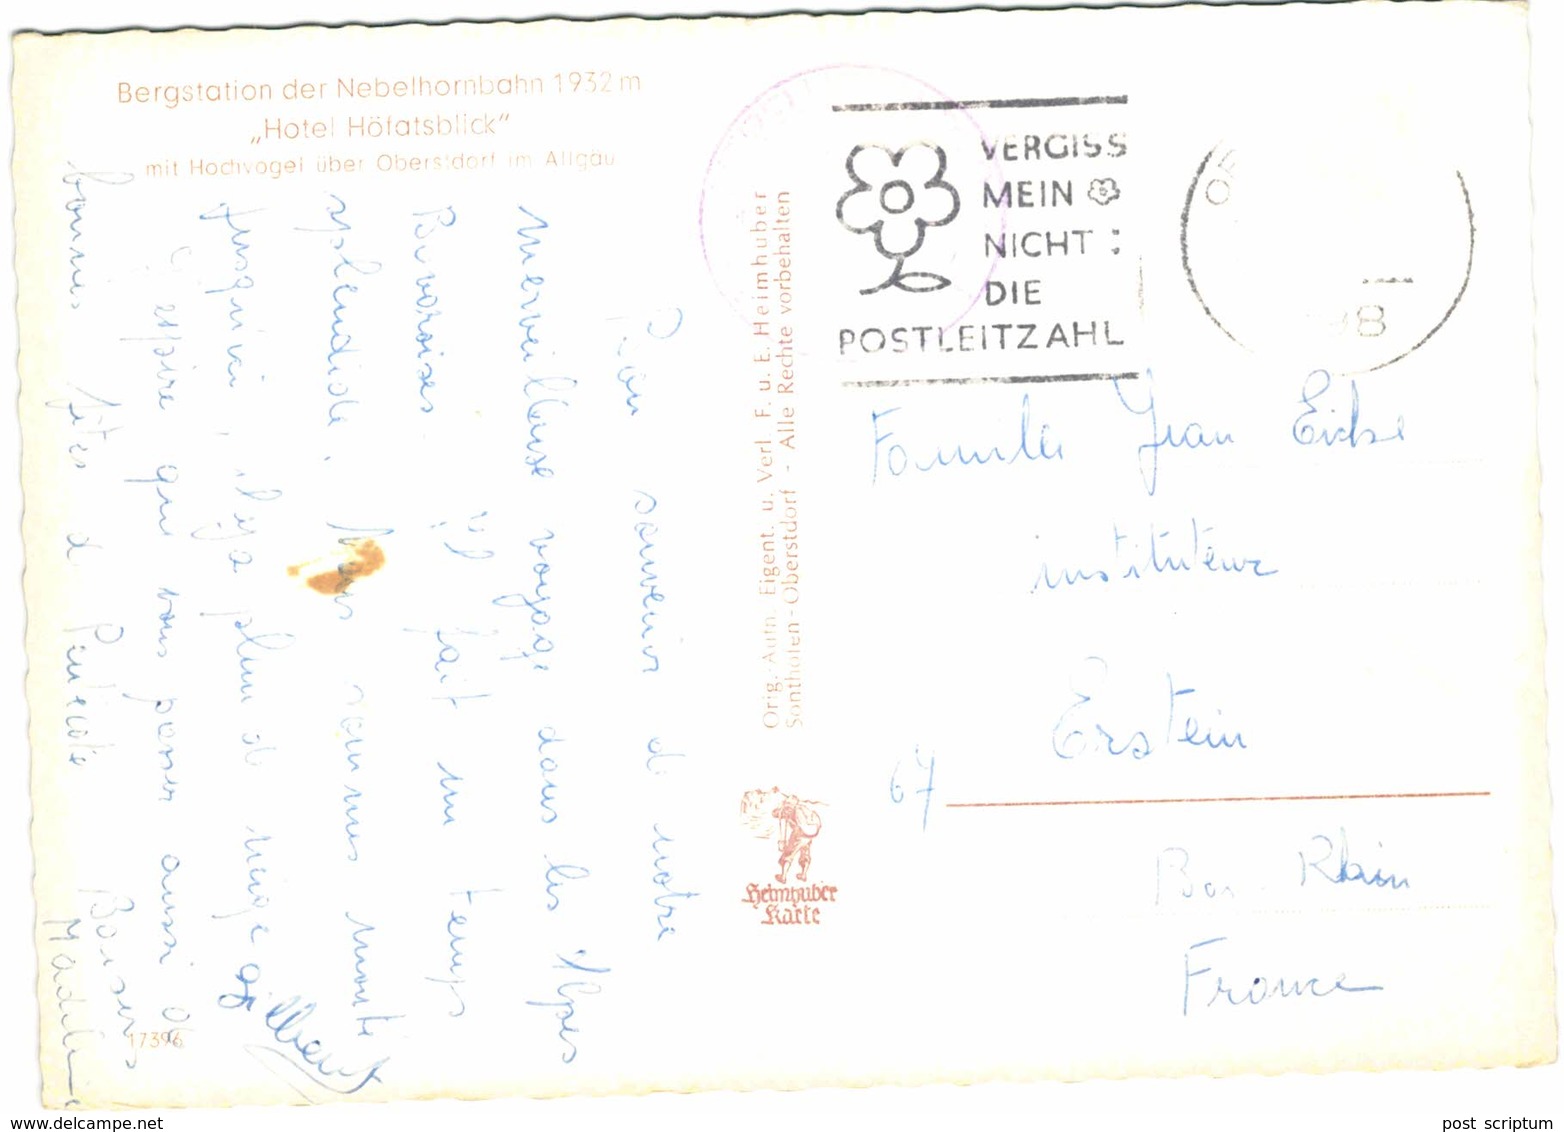 Bergstation der Nebelhornbahn 1932 m
„Hotel Höfatsblick”
mit Hochvogel über Oberstdorf im Allgäu
Bon souvenir de notre
merveilleuse voyage dans les Alpes
Bavaroises. Il fait un temps
splendide. Nous sommes monté
jusqu'ici, il y a plein de neige
J'espère que vous passer aussi de
bonnes fêtes de Pentecôte Baisers
Gilbert
Madeleine
17396
Orig.-Auth. Eigent. u. Verl. F. u. E. Heimhuber
Sonthofen-Oberstdorf - Alle Rechte vorbehalten
Heimhuber
Karte
VERGISS
MEIN
NICHT :
DIE
POSTLEITZAHL
98
Famille Jean
instituteur
Erstein
67
Bas-Rhin
France
www.delcampe.net
post scriptum